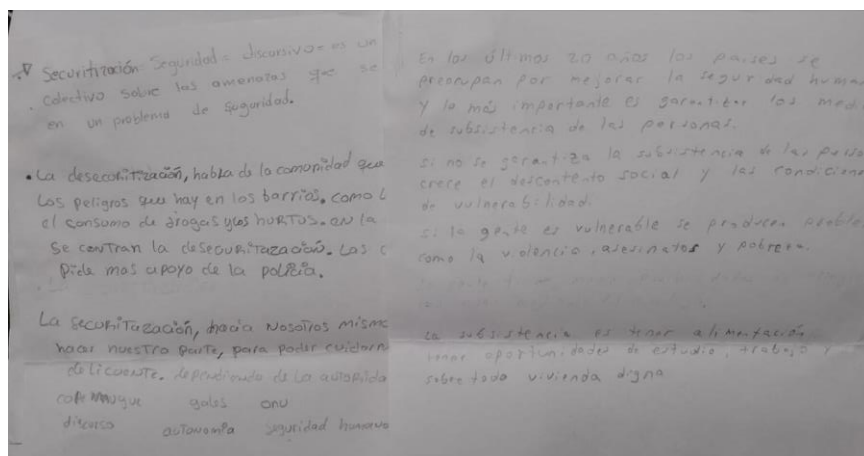 Securitización Seguridad = discursivo = es un
colectivo sobre las amenazas que se
en un problema de suguridad.
• La desecuritización, habla de la comunidad que
Los peligros que hay en los barrios. como
el consumo de drogas y los HURTOS. en la
Se cenTran la Las
Pide mas apoyo de la policia.
La hacia NosoTros mismo
hacer nuestra parte, para poder
delicuente. dependiendo de la
copenhague gales onu
discurso auTonomía seguridad humana
En los últimos 20 años los países se
preocupan por mejorar la seguridad huma
y lo más importante es garantizar los med
de subsistencia de las personas.
si no se garantiza la subsistencia de las perso
crece el descontento social y las condicione
de vulnerabilidad.
si la gente es vulnerable se producen proble
como la violencia, asesinatos y pobreza.
La subsistencia es tener alimentación
tener oportunidades de estudio, trabajo y
sobre todo vivienda digna